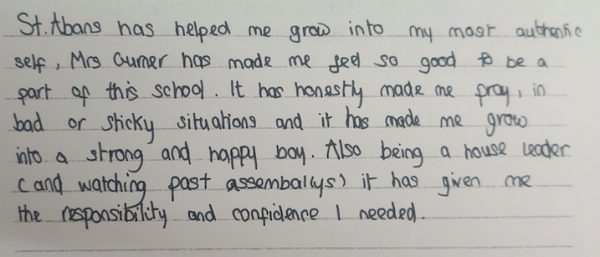 St. Abans has helped me grow into my most authentic
self, Mrs Gurner has made me feel so good to be a
part of this school. It has honestly made me pray, in
bad or sticky situations and it has made me grow
into a strong and happy boy. Also being a house leader
(and watching past assembally(s) it has given me
the responsibility and confidence I needed.